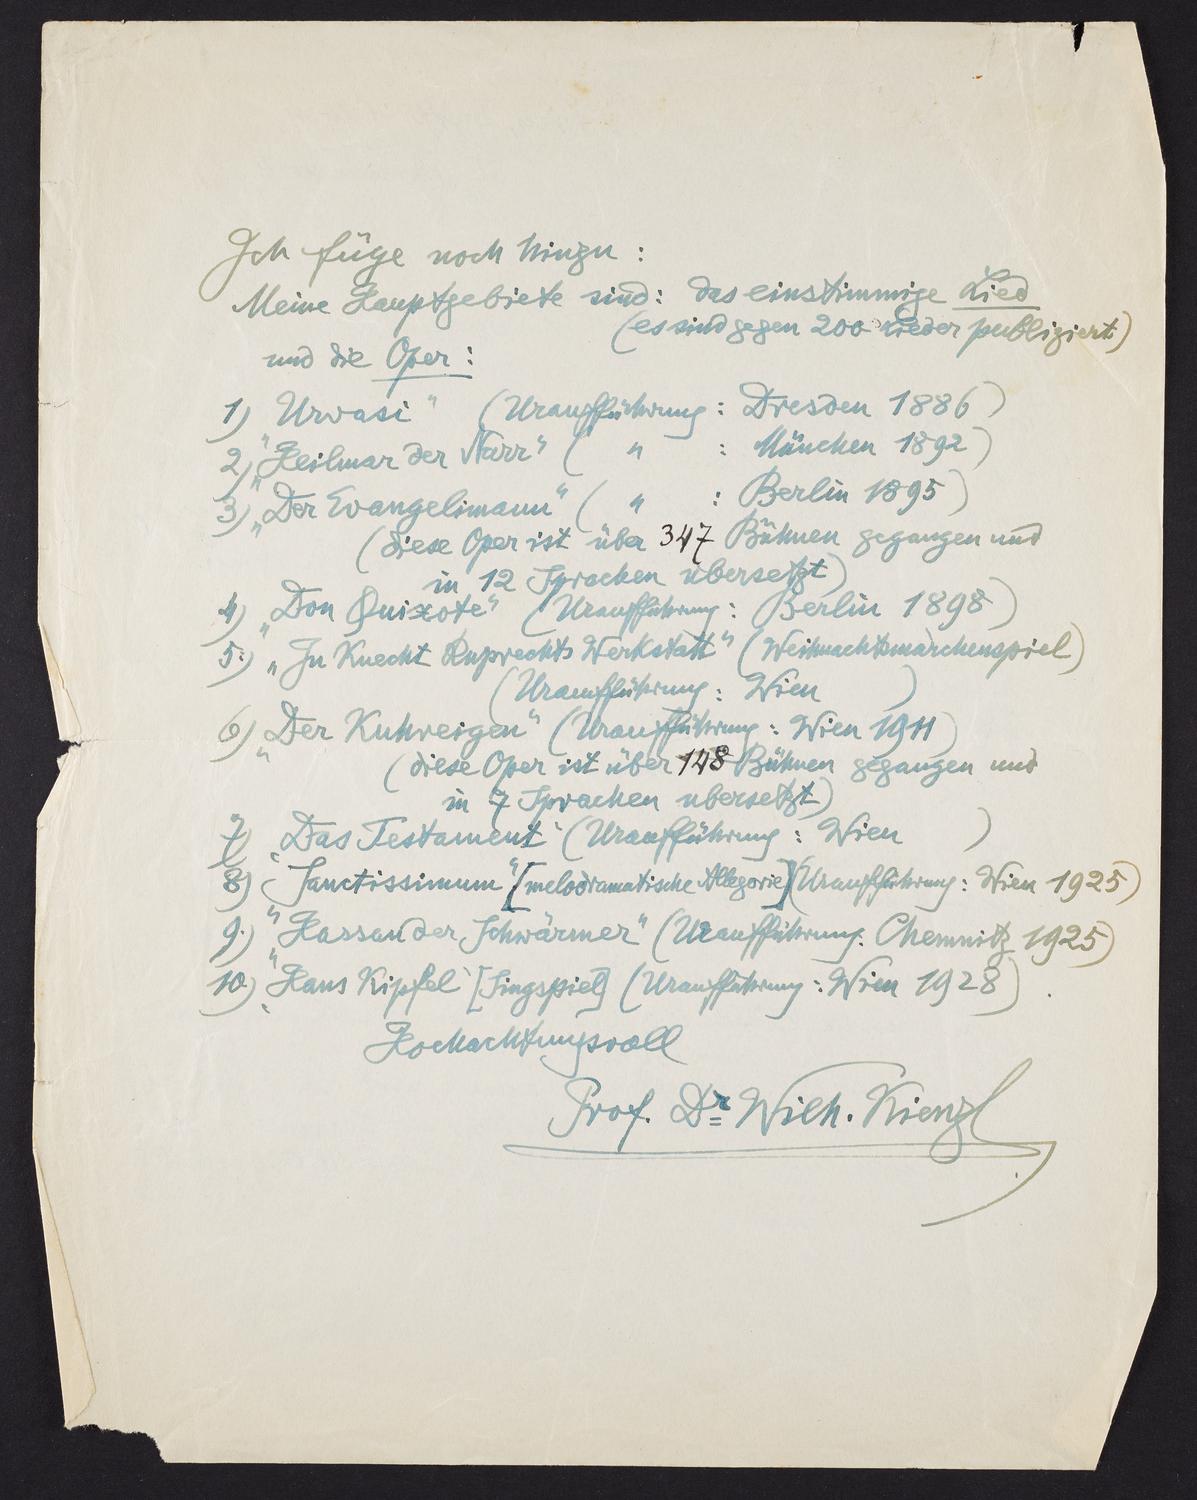 Ich füge noch hinzu :
Meine Hauptgebiete sind: das einstimmige Lied
(es sind gegen 200 Lieder publiziert)
und die Oper :
1) Urvasi" (Uraufführung : Dresden 1886)
2) „Heilmar der Narr" ( " : München 1892)
3) „Der Evangelimann" ( " : Berlin 1895)
(diese Oper ist über 347 Bühnen gegangen und
in 12 Sprachen übersetzt)
4) „Don Quixote" (Uraufführung : Berlin 1898)
5.) „In Knecht Ruprechts Werkstatt" (Weihnachtsmärchenspiel)
(Uraufführung : Wien )
6) „Der Kuhreigen" (Uraufführung : Wien 1911)
(diese Oper ist über 148 Bühnen gegangen und
in 7 Sprachen übersetzt)
7) „Das Testament" (Uraufführung : Wien )
8) „Sanctissimum" [melodramatische Allegorie] (Uraufführung : Wien 1925)
9.) „Hassan der Schwärmer" (Uraufführung: Chemnitz 1925)
10) „Hans Kipfel" [Singspiel] (Uraufführung : Wien 1928) .
Hochachtungsvoll
Prof. Dr Wilh. Kienzl